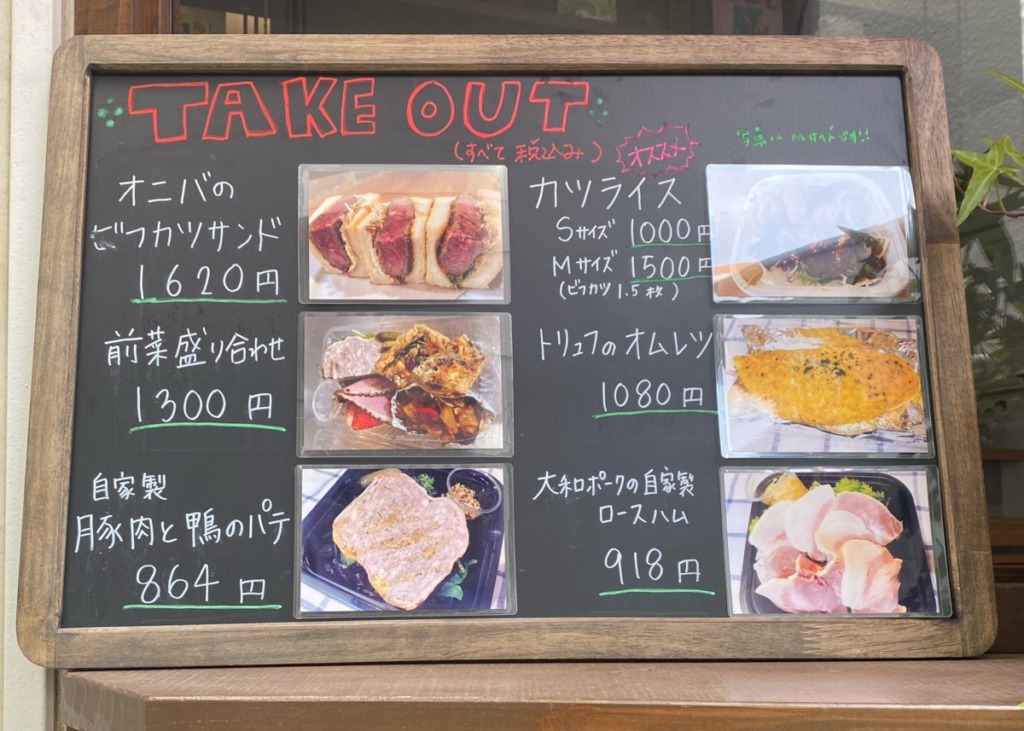 TAKE OUT
(すべて税込み)
オニバの
ビフカツサンド
1620円
前菜盛り合わせ
1300円
自家製
豚肉と鴨のパテ
864円
オススメ
写真は Mサイズです!!
カツライス
Sサイズ 1000円
Mサイズ 1500円
(ビフカツ 1.5枚)
トリュフのオムレツ
1080円
大和ポークの自家製
ロースハム
918円